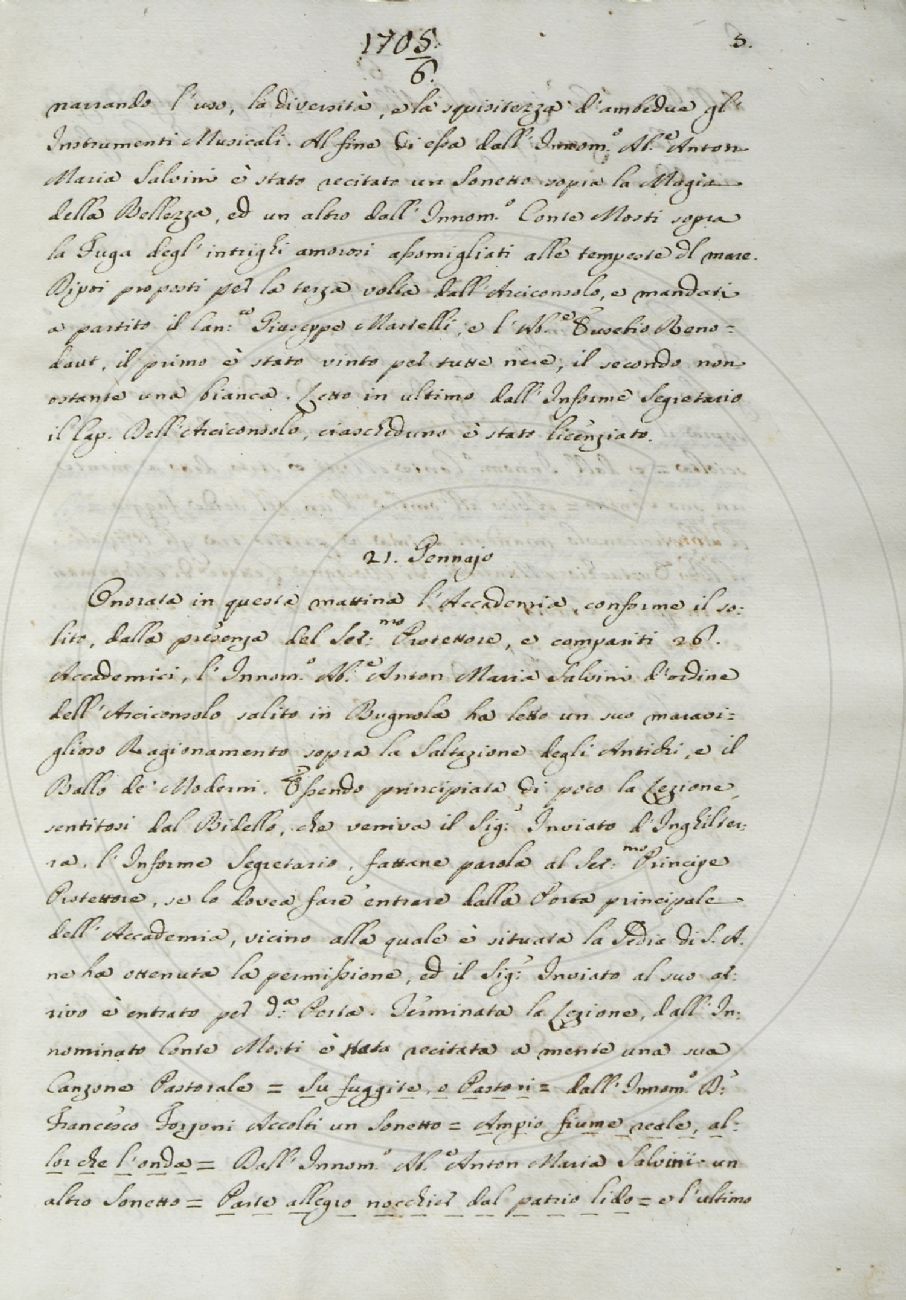 1705. 5.
6.
narrando l'uso, la diversità, e la squisitezza d'ambedue gl'
Instrumenti Musicali. Al fine di essa dall'Innom.º Ab.e Anton
Maria Salvini è stato recitato un Sonetto sopra la Magia
della Bellezza, ed un altro dall'Innom.º Conte Mosti sopra
la Fuga degl'intrighi amorosi assomigliati alle tempeste dl mare.
Dipoi proposti per la terza volta dall'Arciconsolo, e mandati
a partito il Can.co Giuseppe Martelli, e l'Ab.e Eusebio Reno=
daut, il primo è stato vinto per tutte nere, il secondo non
ostante una bianca. Letto in ultimo dall'Informe Segretario
il Cap. Dell'Arciconsolo, ciascheduno è stato licenziato.
21. Gennajo
Onorata in questa mattina l'Accademia, conforme il so:
lito, dalla presenza del Ser:mo Protettore, e compariti 26.
Accademici, l'Innom.º Ab.e Anton Maria Salvini d'ordine
dell'Arciconsolo salito in Bugnola ha letto un suo maravi=
glioso Ragionamento sopra la Saltazione degli Antichi, e il
Ballo de' Moderni. Essendo principiata di poco la Lezione,
sentitosi dal Bidello, che veniva il Sig.r Inviato d'Inghilter:
ra, l'Informe Segretario, fattane parola al Ser:mo Principe
Protettore, se lo dovea fare entrare dalla Porta principale
dell'Accademia, vicino alla quale è situata la Sedia di S. A.
ne ha ottenuta la permissione, ed il Sig.r Inviato al suo ar:
rivo è entrato per d.a Porta. Terminata la Lezione, dall'In:
nominato Conte Mosti è stata recitata a mente una sua
Canzone Pastorale = Su fuggite, o Pastori = dall'Innom.º D.r
Francesco Forzoni Accolti un Sonetto = Ampio fiume reale, al:
lor che l'onda = Dall'Innom.º Ab.e Anton Maria Salvini un
altro Sonetto = Parte allegro nocchier dal patrio lido = e l'ultimo